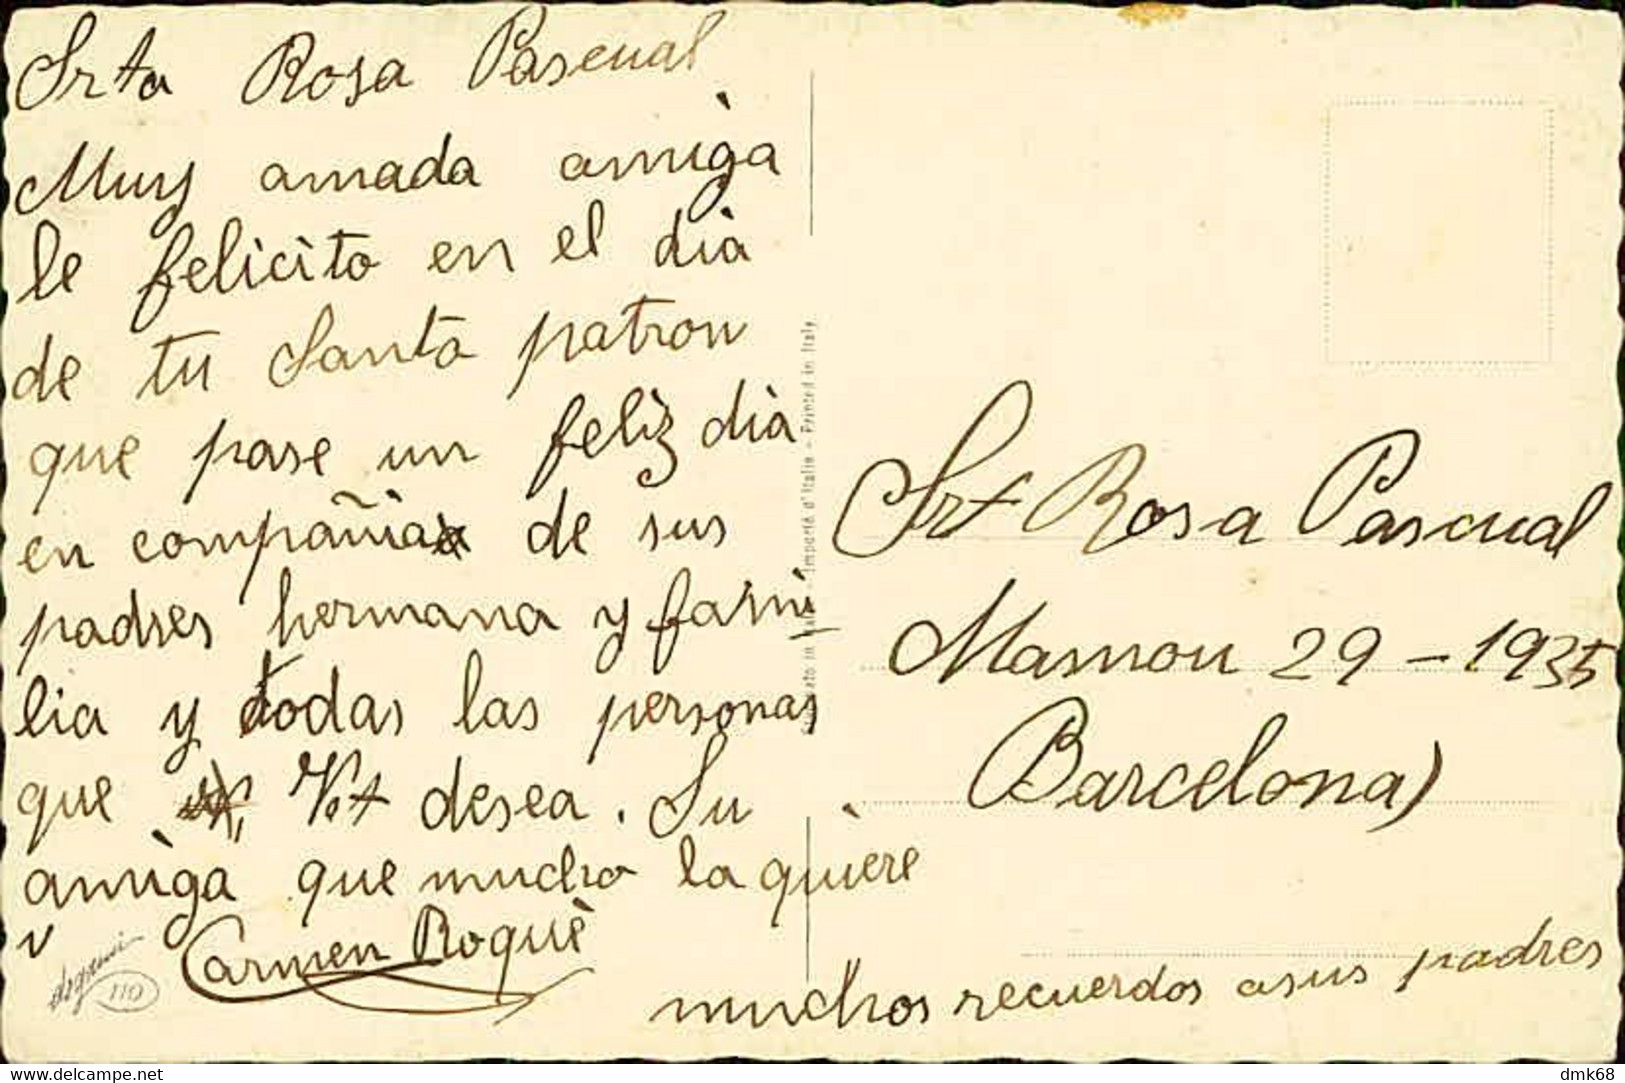 Srta Rosa Pascual
Muy amada amiga
le felicito en el dia
de tu Santo patron
que pase un feliz dia
en compañia de sus
padres hermana y fami
lia y todas las personas
que V.t desea. Su
amiga que mucho la quiere
Carmen Roquè
110
Printed in Italy
Importé d'Italie
Srt Rosa Pascual
Masnou 29-1935
Barcelona)
muchos recuerdos a sus padres
delcampe.net
dmk68